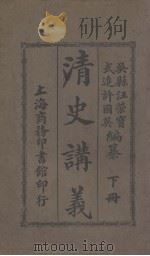 吳縣汪榮寶
武進許國英
編纂 下冊
清史講義
上海商務印書館印行